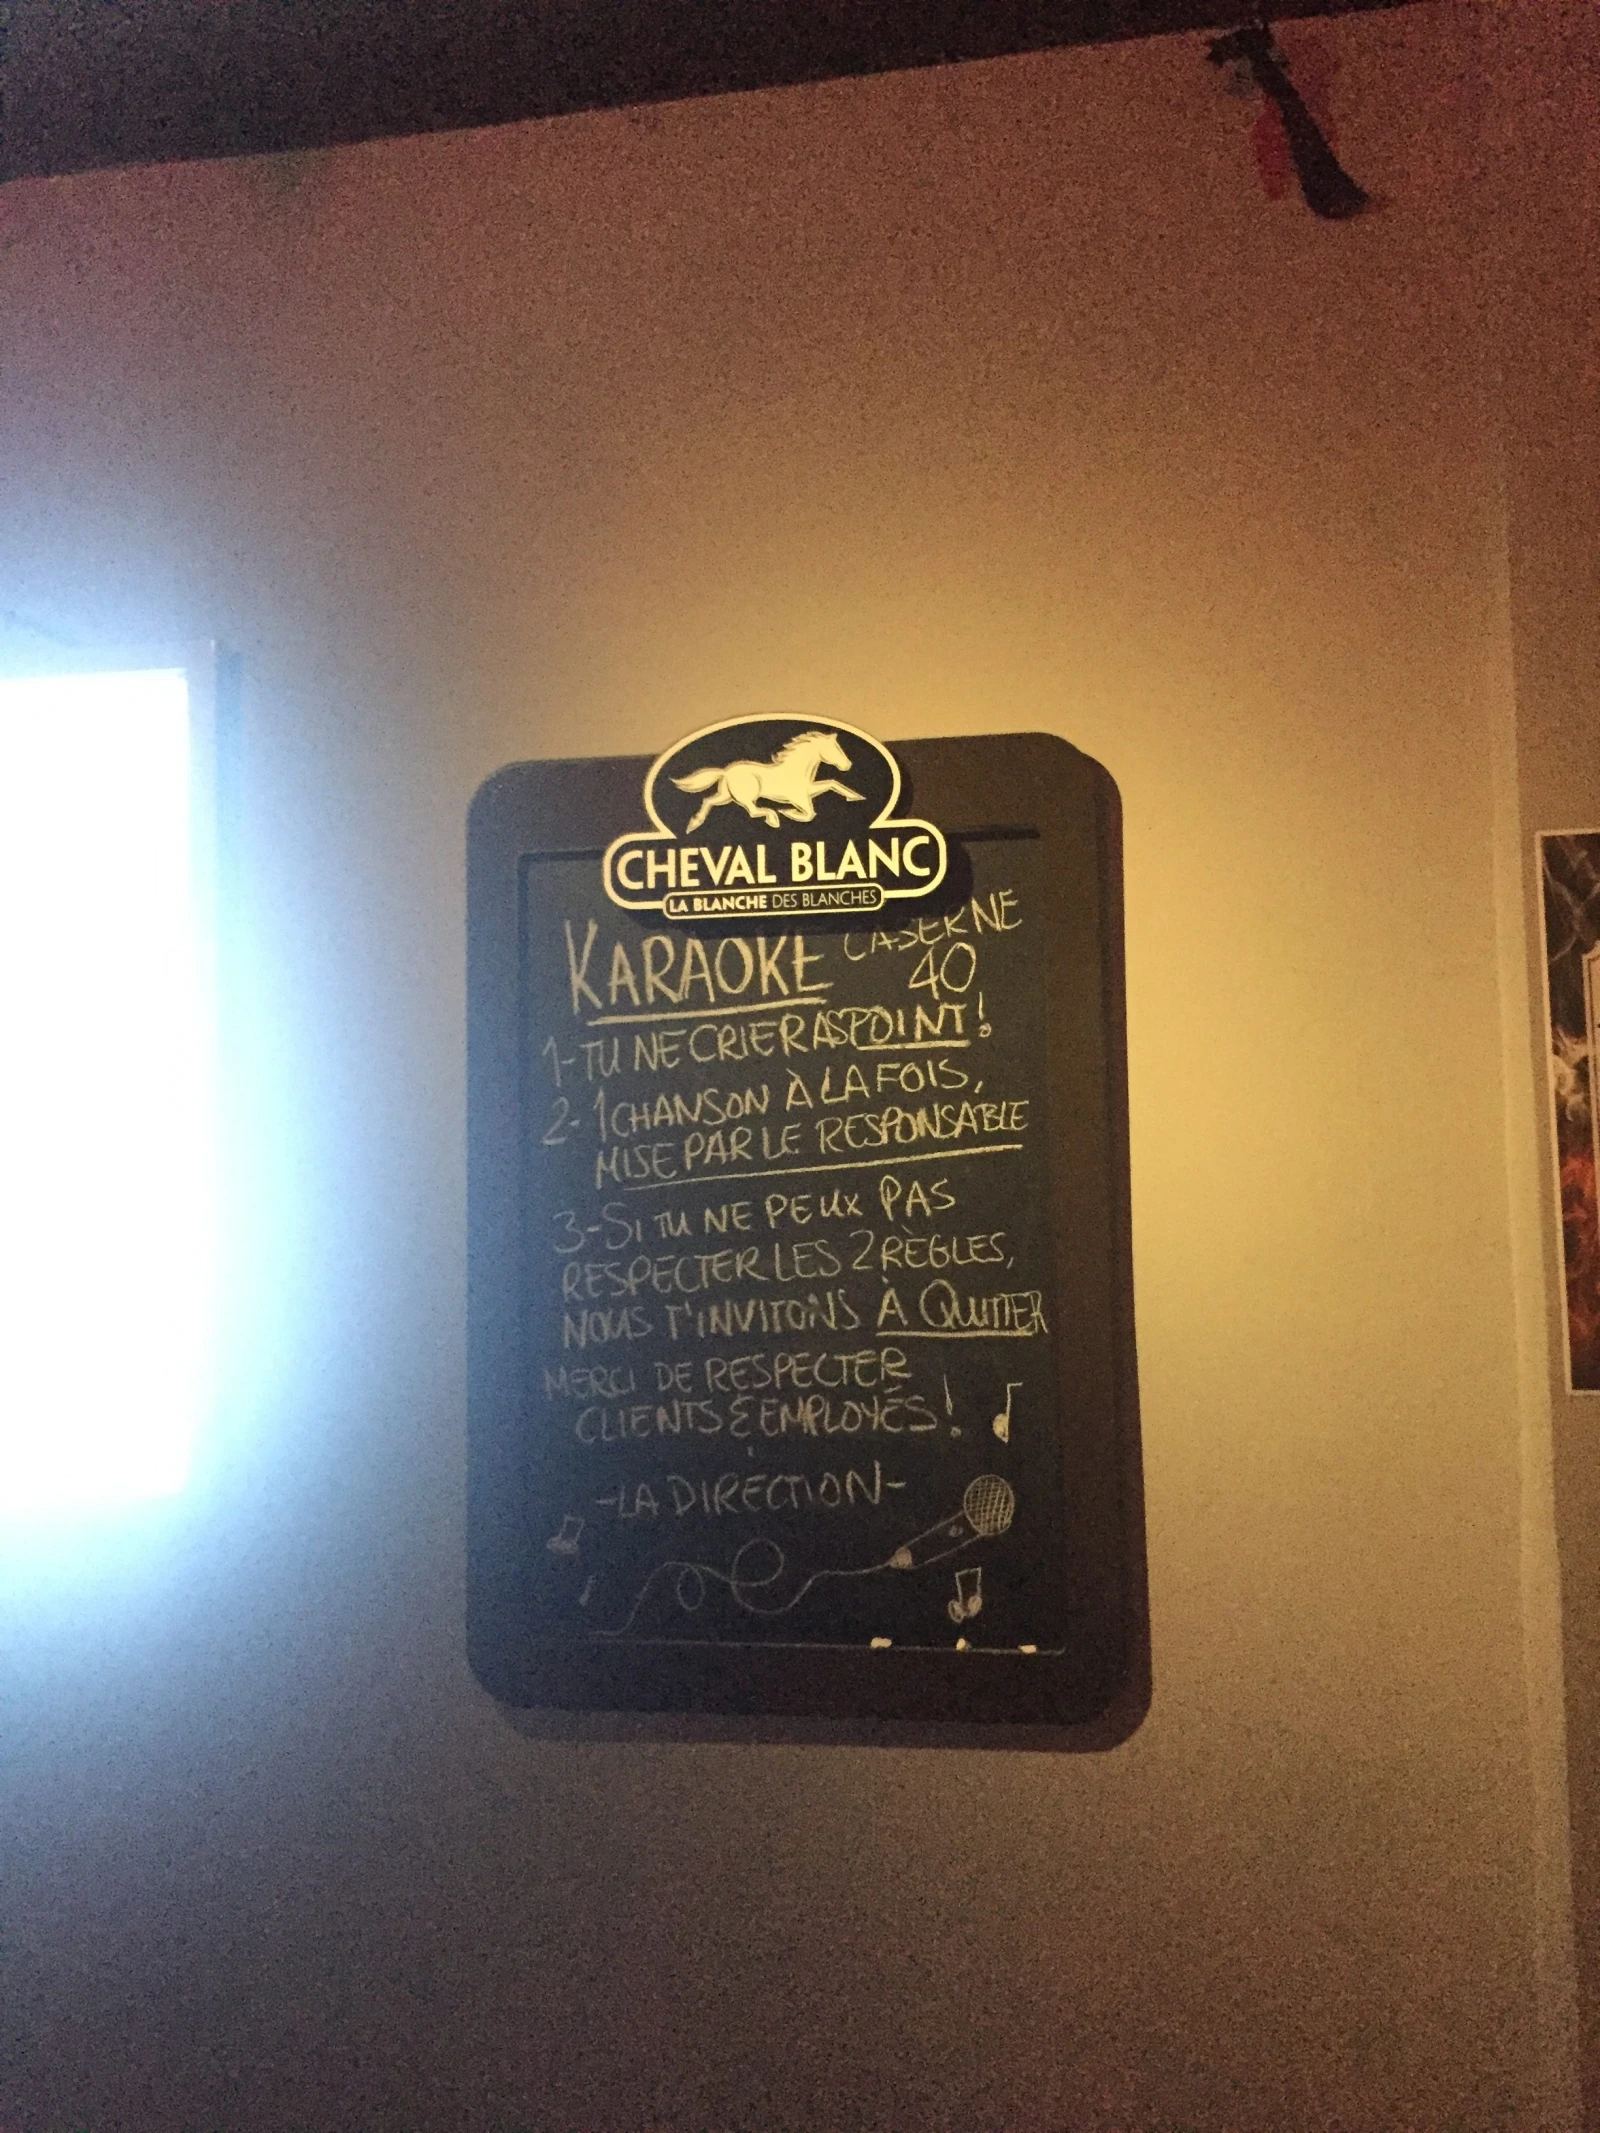 CHEVAL BLANC
LA BLANCHE DES BLANCHES
KARAOKE CASERNE
40
1-TU NE CRIERAS POINT!
2- 1 CHANSON À LA FOIS,
MISE PAR LE RESPONSABLE
3-SI TU NE PEUX PAS
RESPECTER LES 2 RÈGLES,
NOUS T'INVITONS À QUITTER
MERCI DE RESPECTER
CLIENTS & EMPLOYÉS!
-LA DIRECTION-